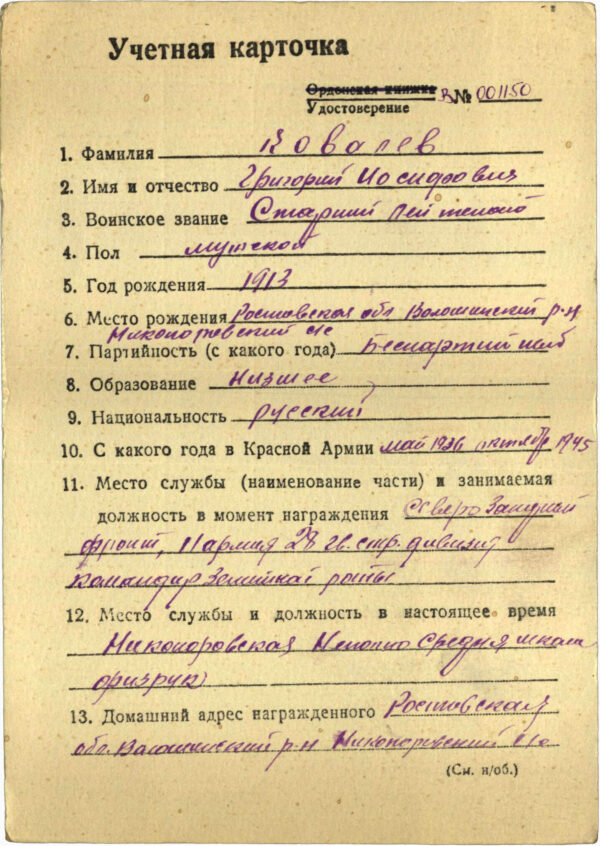 Учетная карточка
Орденская книжка
Удостоверение В№ 001150
1. Фамилия Ковалев
2. Имя и отчество Григорий Иосифович
3. Воинское звание Старший лейтенант
4. Пол мужской
5. Год рождения 1913
6. Место рождения Ростовская обл Волошинский р-н
Никоноровский с/с
7. Партийность (с какого года) Беспартийный
8. Образование низшее
9. Национальность русский
10. С какого года в Красной Армии май 1936 октябр 1945
11. Место службы (наименование части) и занимаемая
должность в момент награждения Северо Западный
фронт, 11 армия 28 гв. стр. дивизия
командир роты
12. Место службы и должность в настоящее время
Никоноровская Неполно Средня школа
физрук
13. Домашний адрес награжденного Ростовская
обл. Волошинский р-н Никоноровский с/с
(См. н/об.)